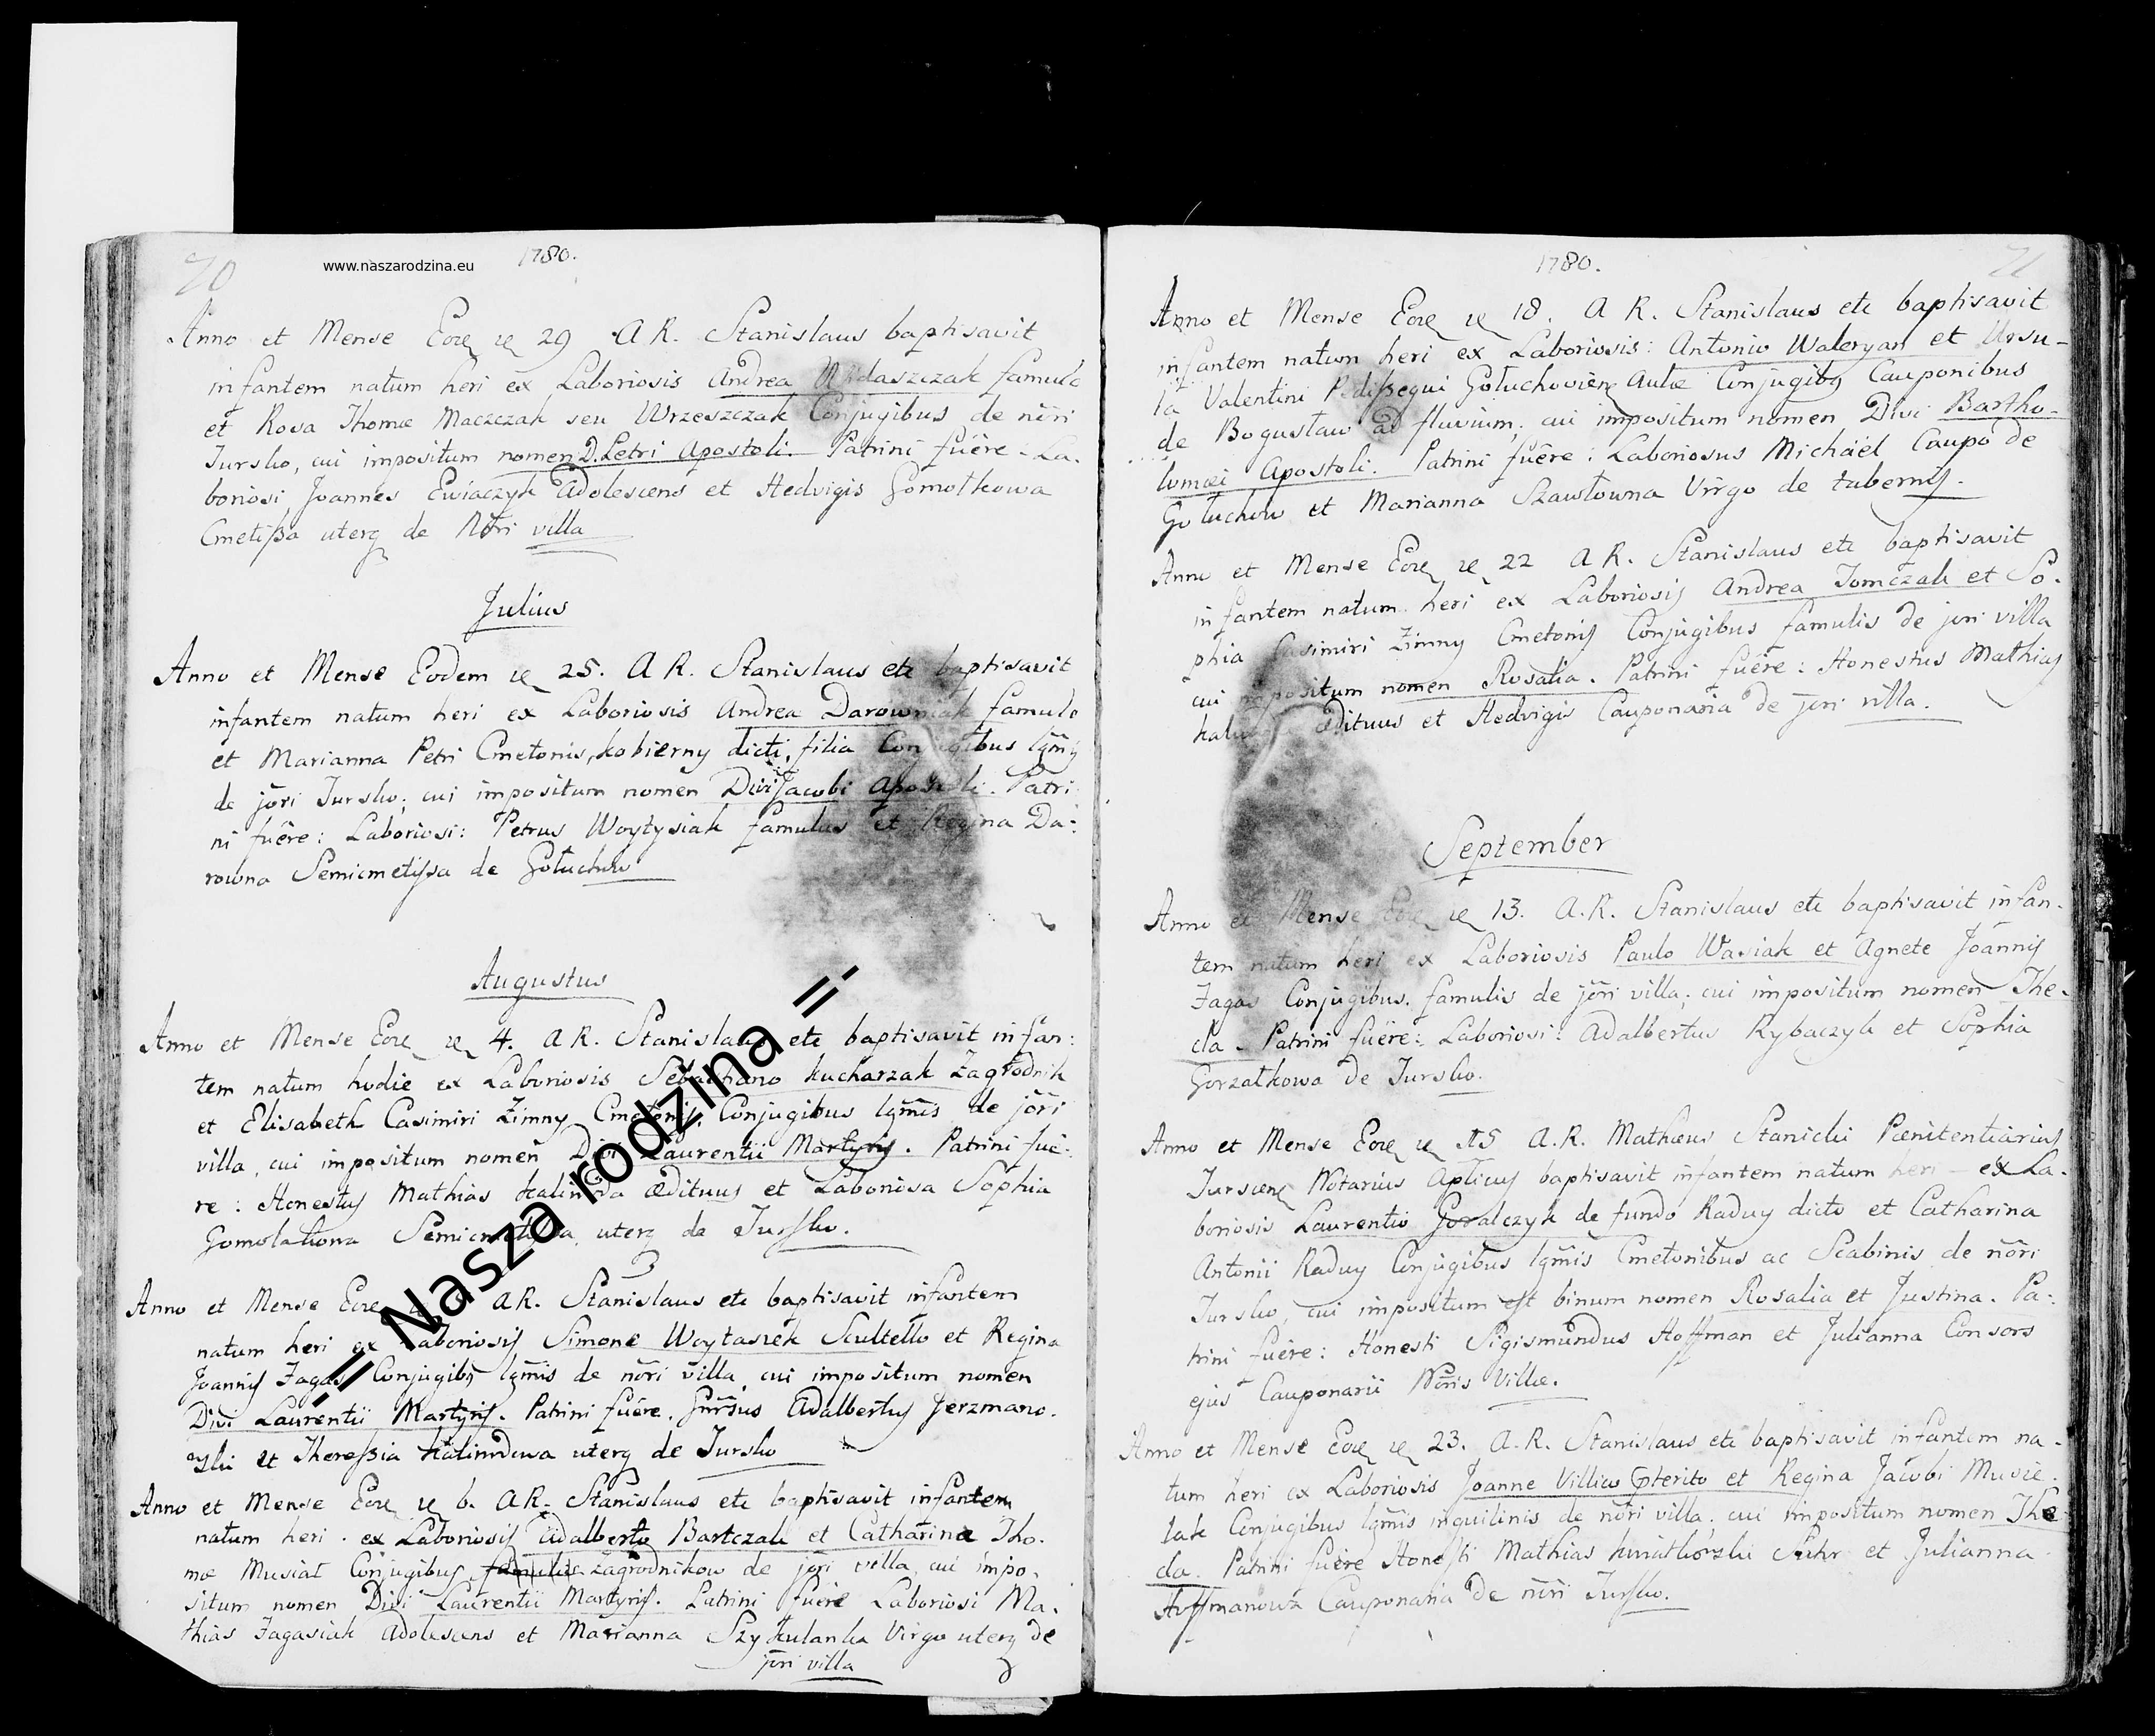 70
www.naszarodzina.eu
1780.
Anno et Mense Eore 29 A R. Stanislaus baptisavit
infantem natum heri ex Laboriosis Andrea famulo
et Rosa Thomæ Maczczak seu Wrzeszczak Conjugibus de nr̃i
Jursko, cui impositum nomen D. Petri Apostoli. Patrini fuêre La-
boriosi Joannes Ewiaczyk Adolescens et Hedvigis Gomolkowa
Cmetißa uterq de Nr̃i villa
Julius
Anno et Mense Eodem 25. A R. Stanislaus etc baptisavit
infantem natum heri ex Laboriosis Andrea Darowniak famulo
et Marianna Petri Cmetonis, kobierny dicti, filia Conjugibus lgm̃is
de jõri Jursko; cui impositum nomen Divi Jacobi Apostoli. Patri
ni fuêre: Laboriosi: Petrus Woytysiak famulus et Regina Da-
rowna Semicmetißa de Gołuchow
Augustus
Anno et Mense Eore 4. A R. Stanislaus etc baptisavit infan:
tem natum hodie ex Laboriosis Sebastiano kucharzak Zagrodnik
et Elisabeth Casimiri Zimny Cmetonis, Conjugibus lgm̃is de jõri
villa, cui impositum nomen Divi Laurentii Martyris. Patrini fuê-
re: Honestus Mathias Kalinoda Ædituus et Laboriosa Sophia
Gomolakowa Semicmetißa, uterq de Jursko.
Anno et Mense Eore A R. Stanislaus etc baptisavit infantem
natum heri ex Laboriosis Simone Woytaszek Scultetto et Regina
Joannis Jagas Conjugibs lgm̃is de nõri villa, cui impositum nomen
Divi Laurentii Martyris. Patrini fuêre. Adalbertus Jerzmano-
wski et Thereßia Kalinodowa uterq de Jursko
Anno et Mense Eore 6. A R. Stanislaus etc baptisavit infantem
natum heri ex Laboriosis Adalberto Bartczak et Catharina Tho-
mæ Musiał Conjugibus famulis zagrodnikow de jõri villa, cui impo-
situm nomen Divi Laurentii Martyris. Patrini fuêre Laboriosi Ma-
thias Jagasiak Adolescens et Marianna Szykulanka Virgo uterq de
jõri villa
Nasza rodzina
71
1780.
Anno et Mense Eore 18. A R. Stanislaus etc baptisavit
infantem natum heri ex Laboriosis: Antonio Waleryan et Ursu-
la Valentini Pedißequi Gołuchovien Aulæ Conjugibs Cauponibus
de Bogusław ad fluvium; cui impositum nomen Divi Bartho-
lomæi Apostoli. Patrini fuêre: Laboriosus Michaël Caupo de
Gołuchow et Marianna Szawłowna Virgo de tabernis.
Anno et Mense Eore 22 A R. Stanislaus etc baptisavit
infantem natum heri ex Laboriosis Andrea Tomczak et So-
phia Casimiri Zimny Cmetonis Conjugibus famulis de jõri villa
cui impositum nomen Rosalia. Patrini fuêre: Honestus Mathias
Ædituus et Hedvigis Cauponaria de jõri villa.
September
Anno et Mense Eore 13. A.R. Stanislaus etc baptisavit infan-
tem natum heri ex Laboriosis Paulo Wasiak et Agnete Joannis
Jagas Conjugibus. famulis de jõri villa; cui impositum nomen The-
cla. Patrini fuêre: Laboriosi: Adalbertus Rybaczyk et Sophia
Gorzałkowa de Jursko.
Anno et Mense Eore 15 A.R. Mathæus Stanicki Pænitentiarius
Jurscens Notarius Aplicus baptisavit infantem natum heri ex La-
boriosis Laurentio Goralczyk de fundo Raduy dicto et Catharina
Antonii Raduy Conjugibus lgm̃is Cmetonibus ac Scabinis de nõri
Jursko, cui impositum est binum nomen Rosalia et Justina. Pa-
trini fuêre: Honesti Sigismundus Hoffman et Julianna Consors
ejus Cauponarii Nõris Villæ.
Anno et Mense Eore 23. A.R. Stanislaus etc baptisavit infantem na-
tum heri ex Laboriosis Joanne Villico et Regina Jacobi Musie-
lak Conjugibus lgm̃is inquilinis de nõri villa. cui impositum nomen The
cla. Patrini fuêre Honesti Mathias kwiatkowski et Julianna
Hoffmanowa Cauponaria de nr̃i Jursko.